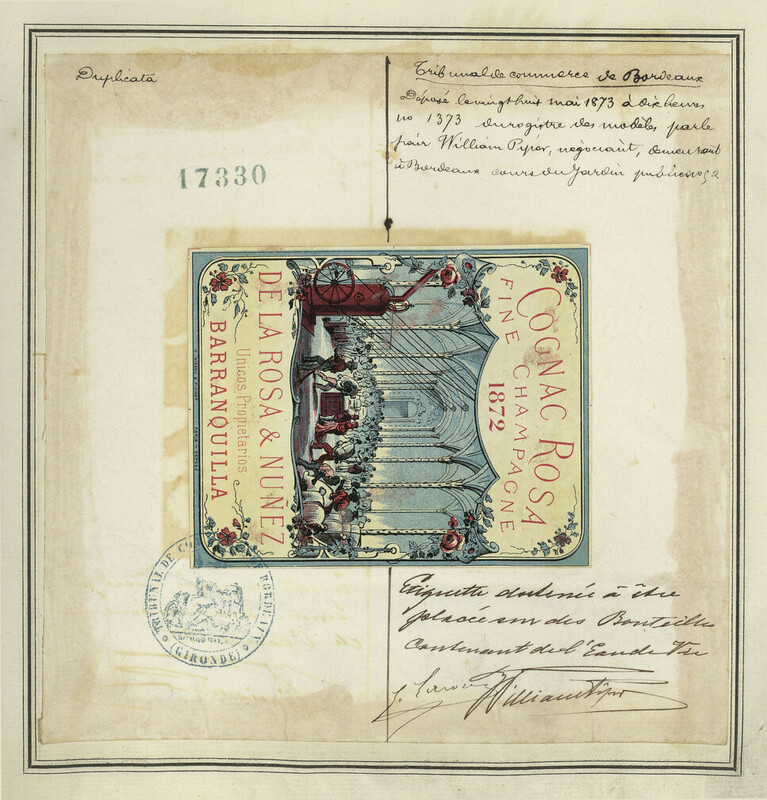 Duplicata
Tribunal de commerce de Bordeaux
Déposé le vingt huit mai 1873 à dix heures
no 1373 du registre des modèles par le
William Pipér, négociant, demeurant
à Bordeaux cours du Jardin public no
17330
COGNAC ROSA
FINE CHAMPAGNE
1872
DE LA ROSA & NUÑEZ
Unicos Propietarios
BARRANQUILLA
TRIBUNAL DE
(GIRONDE)
Etiquette destinée à être
placée sur des Bouteilles
Contenant de l'Eau de Vie
William Pipér